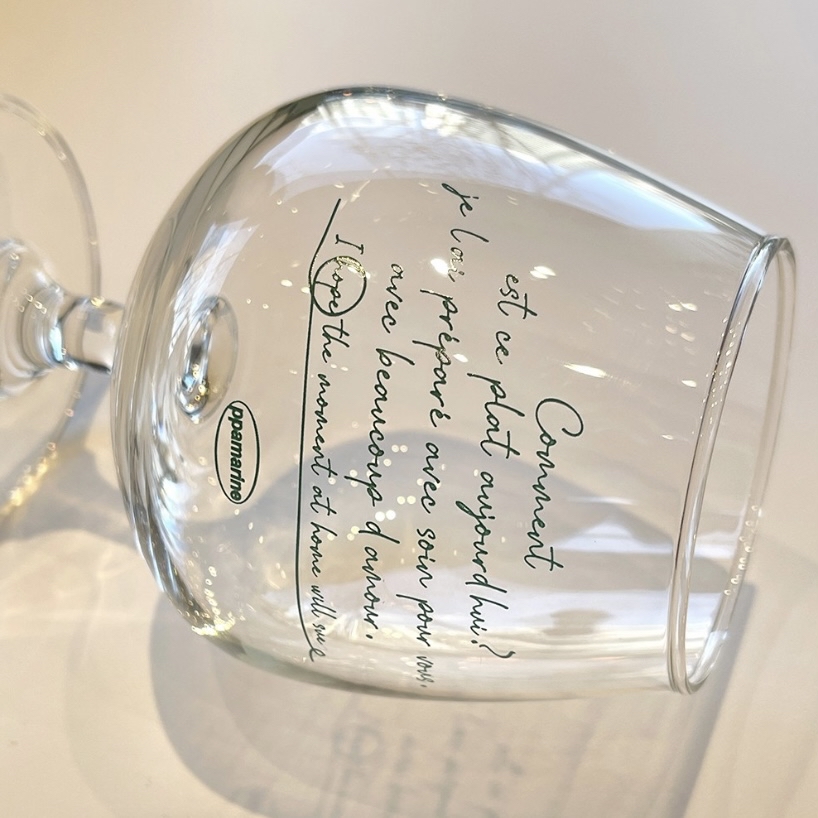 Comment
est ce plat aujourdhui?
je l ai préparé avec soin pour vous.
avec beaucoup d amour.
I hope the moment at home will
ppamarine